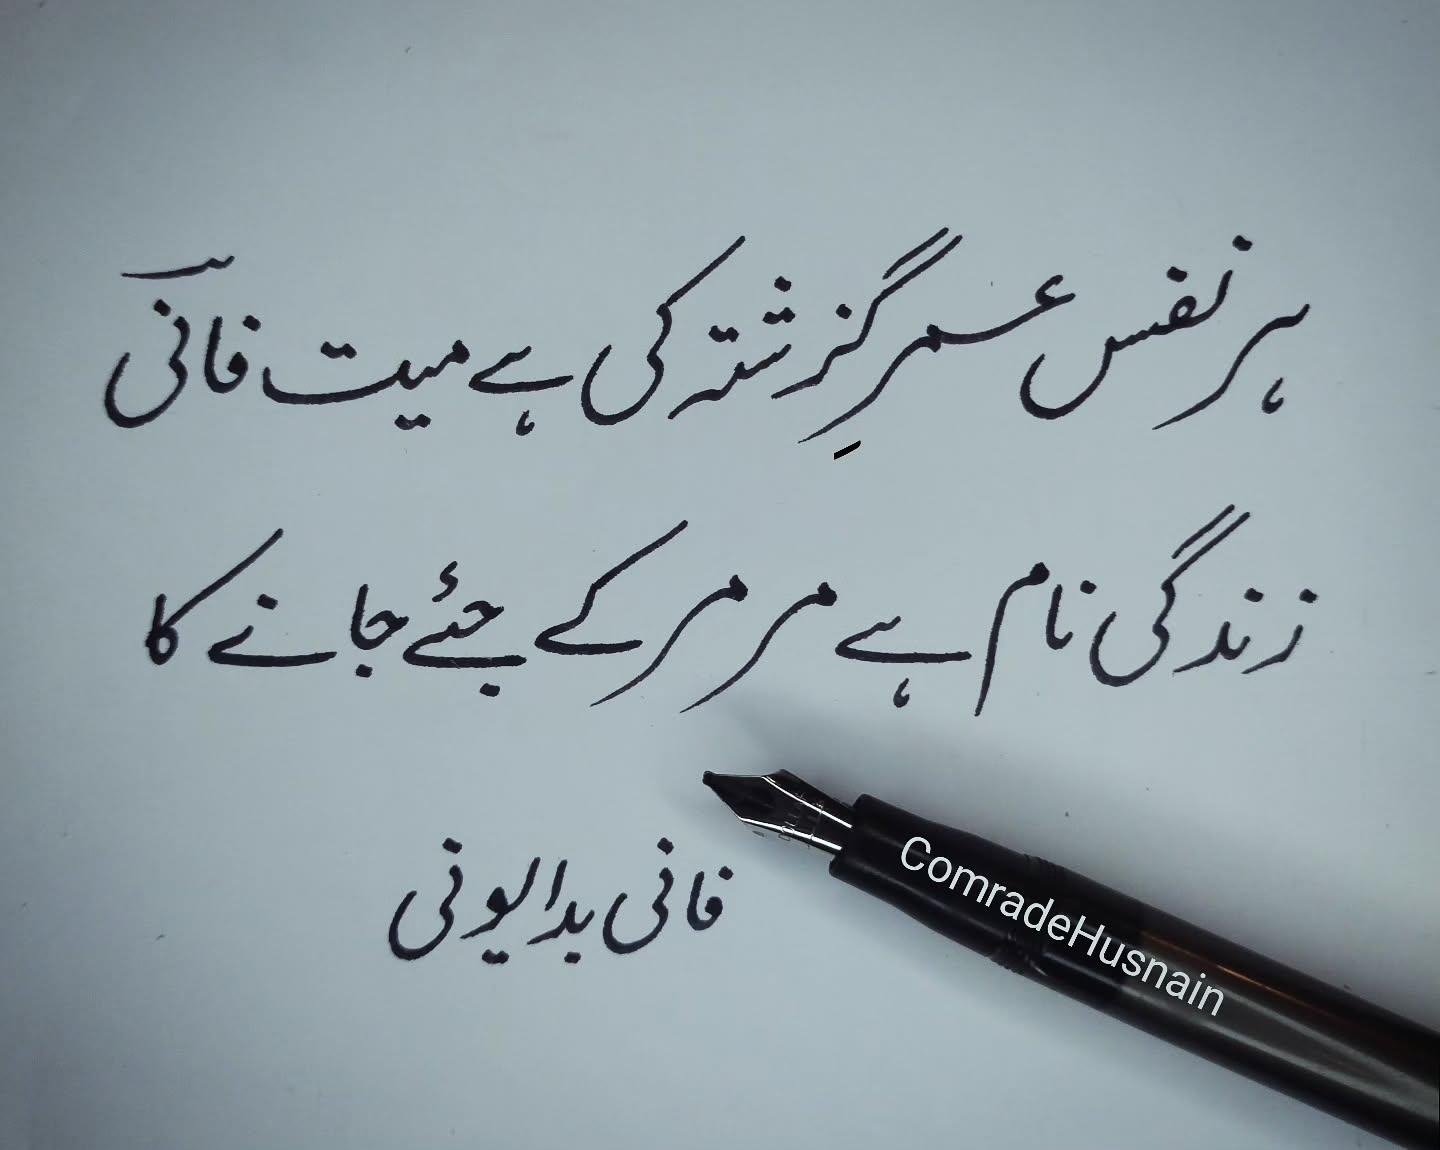 ہر نفس عمرِ گزشتہ کی ہے میت فانیؔ
زندگی نام ہے مر مر کے جئے جانے کا
فانی بدایونی
ComradeHusnain